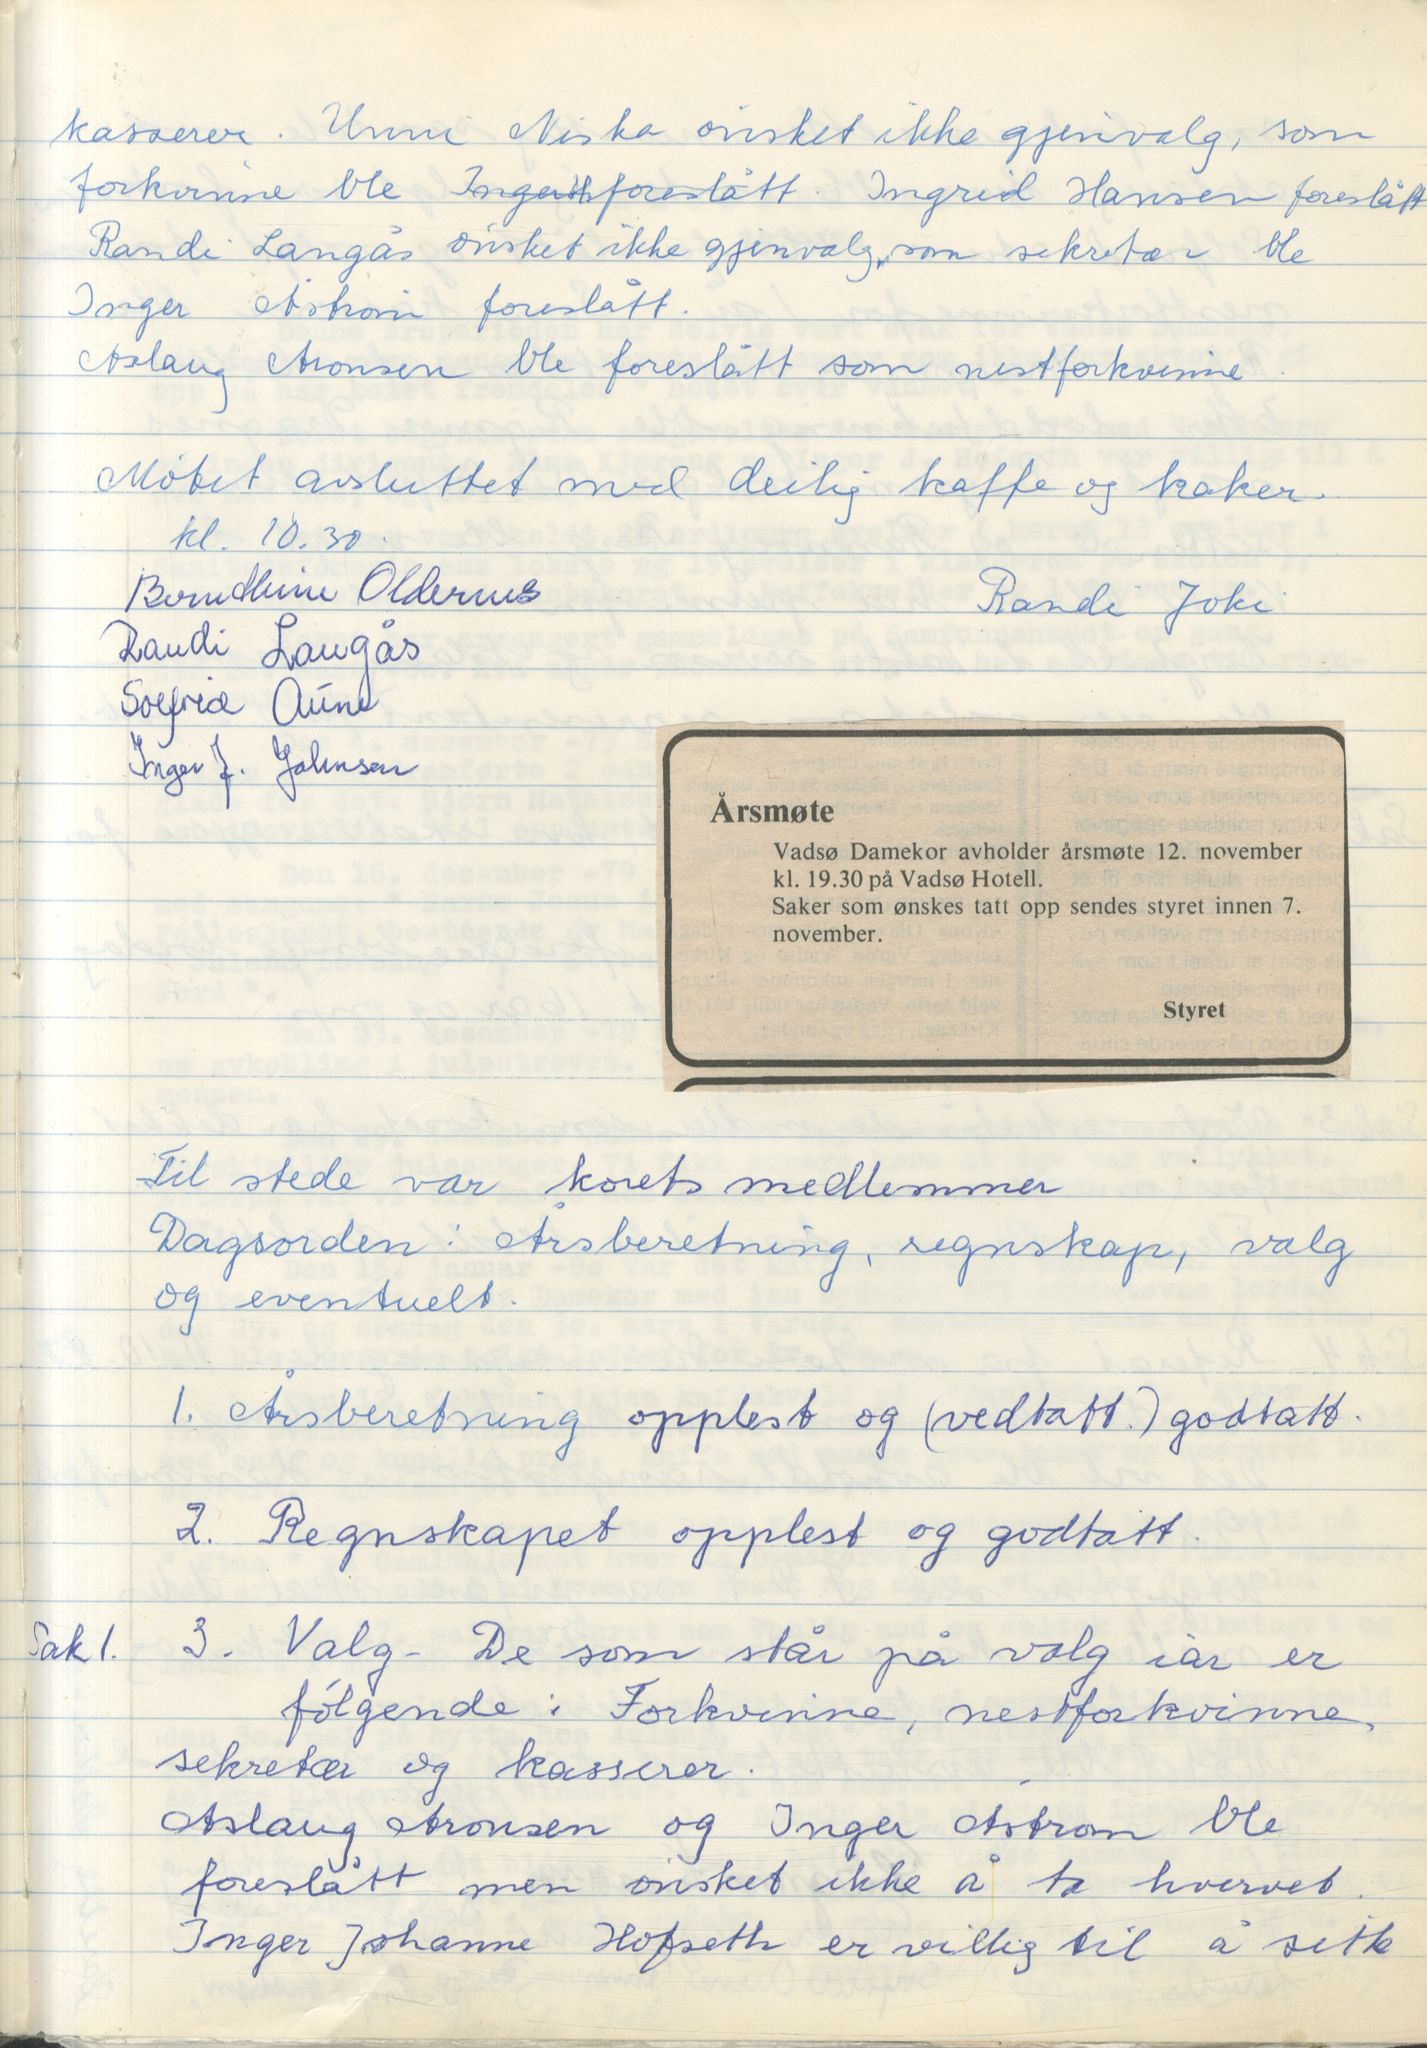 kasserer. Unni Niska ønsket ikke gjenvalg, som
forkvinne ble foreslått. Ingrid Hansen foreslått
Randi Langås ønsket ikke gjenvalg, som sekretær ble
Inger Astrom foreslått.
Aslaug Aronsen ble foreslått som nestforkvinne.
Møtet avsluttet med deilig kaffe og kaker.
kl. 10.30.
Randi Joki
Randi Langås
Solfrid Aune
Inger J. Johnsen
Årsmøte
Vadsø Damekor avholder årsmøte 12. november
kl. 19.30 på Vadsø Hotell.
Saker som ønskes tatt opp sendes styret innen 7.
november.
Styret
Til stede var korets medlemmer
Dagsorden: Årsberetning, regnskap, valg
og eventuelt.
1. Årsberetning opplest og (vedtatt.) godtatt.
2. Regnskapet opplest og godtatt.
Sak 1. 3. Valg - De som står på valg iår er
følgende: Forkvinne, nestforkvinne,
sekretær og kasserer.
Aslaug Aronsen og Inger Astrom ble
foreslått men ønsket ikke å ta hvervet.
Inger Johanne Hofseth er villig til å sitte